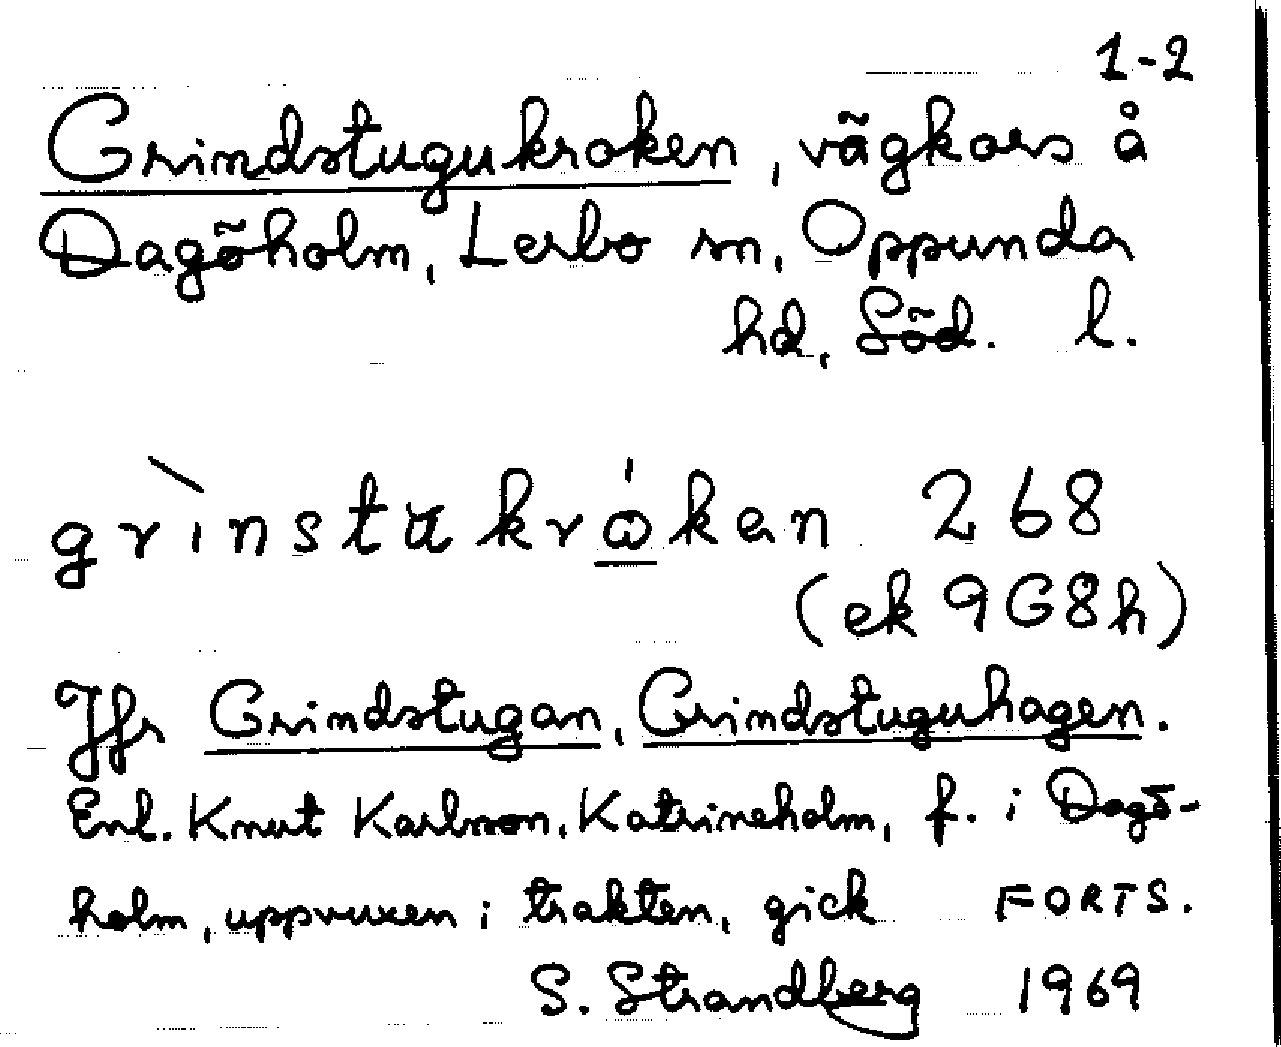 1-2
Grindstugukroken, vägkors å
Dagöholm, Lerbo sn, Oppunda
hd, Söd. l.
grìnstukrώ̲ken 268
(ek 9G8h)
Jfr Grindstugan, Grindstuguhagen.
Enl. Knut Karlsson, Katrineholm, f. i Dagö-
holm, uppvuxen i trakten, gick FORTS.
S. Strandberg 1969